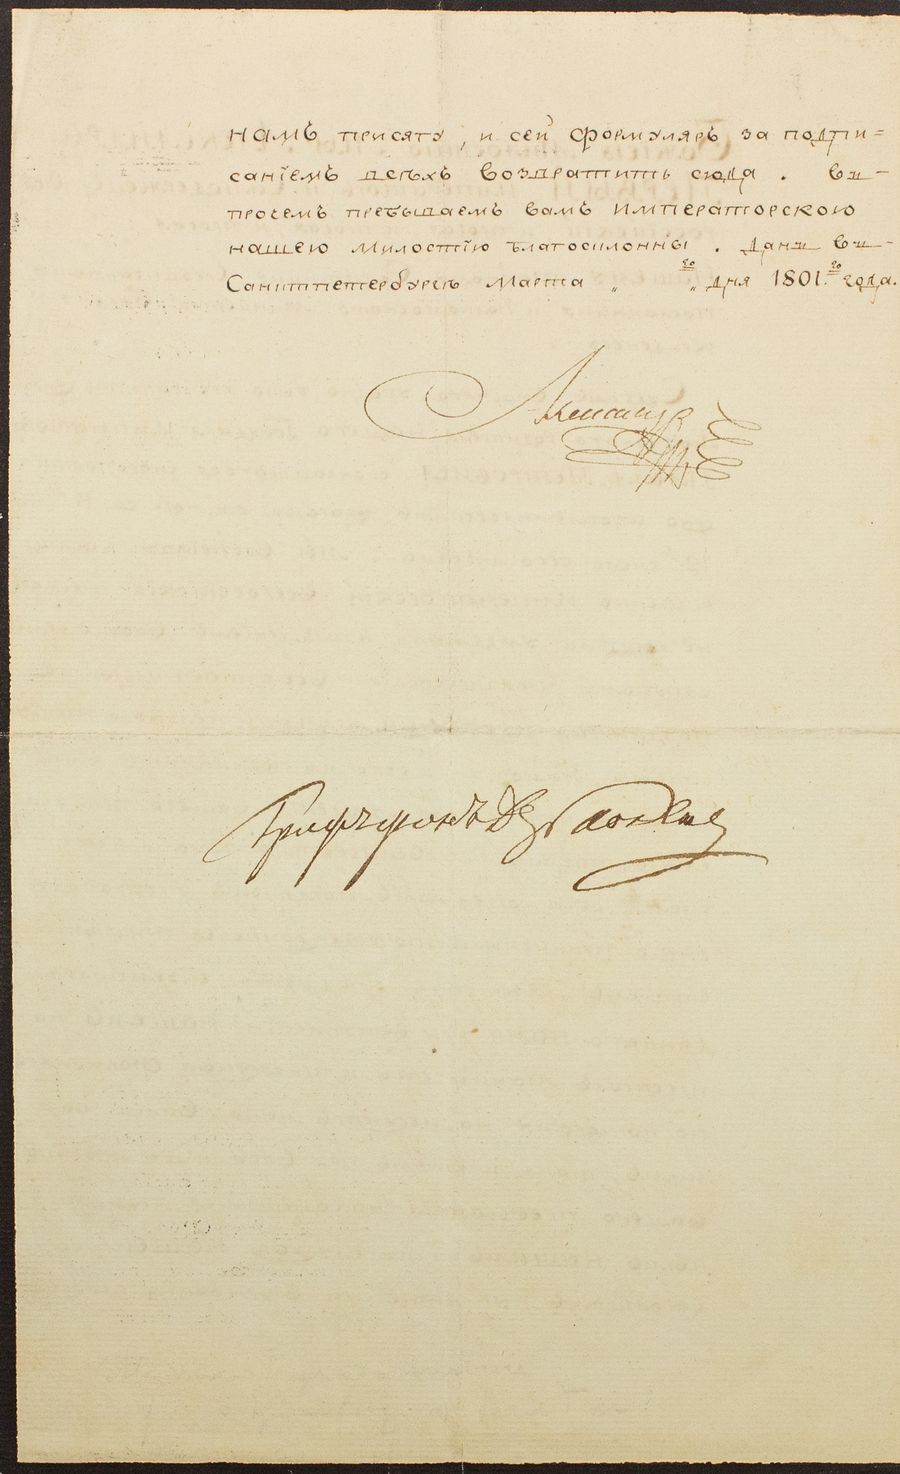 намъ присягу, и сей формуляръ за подпи=
саніемъ всѣхъ возвратить сюда. Въ-
прочемъ пребываемъ вамъ Императорскою
нашею милостію благосклонны. Данъ въ-
Санктпетербургѣ Марта „ „ го дня 1801. го года.
Александръ
Графъ фонъ Дер Пален